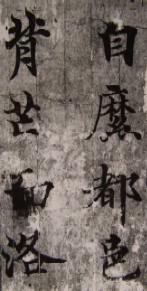 自縻都邑
背芒面洛